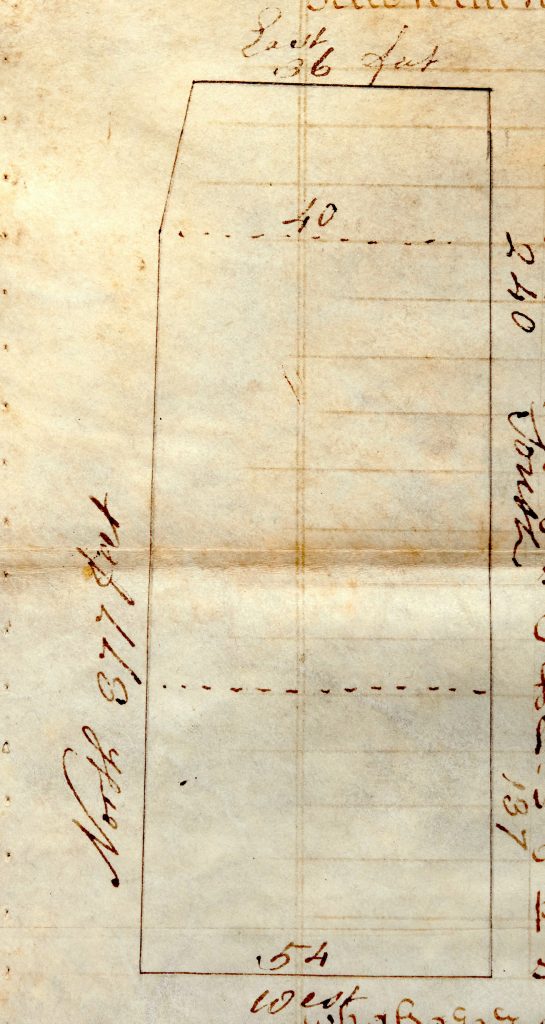 East
36 feet
40
240 South
North 377 feet
137
54
West